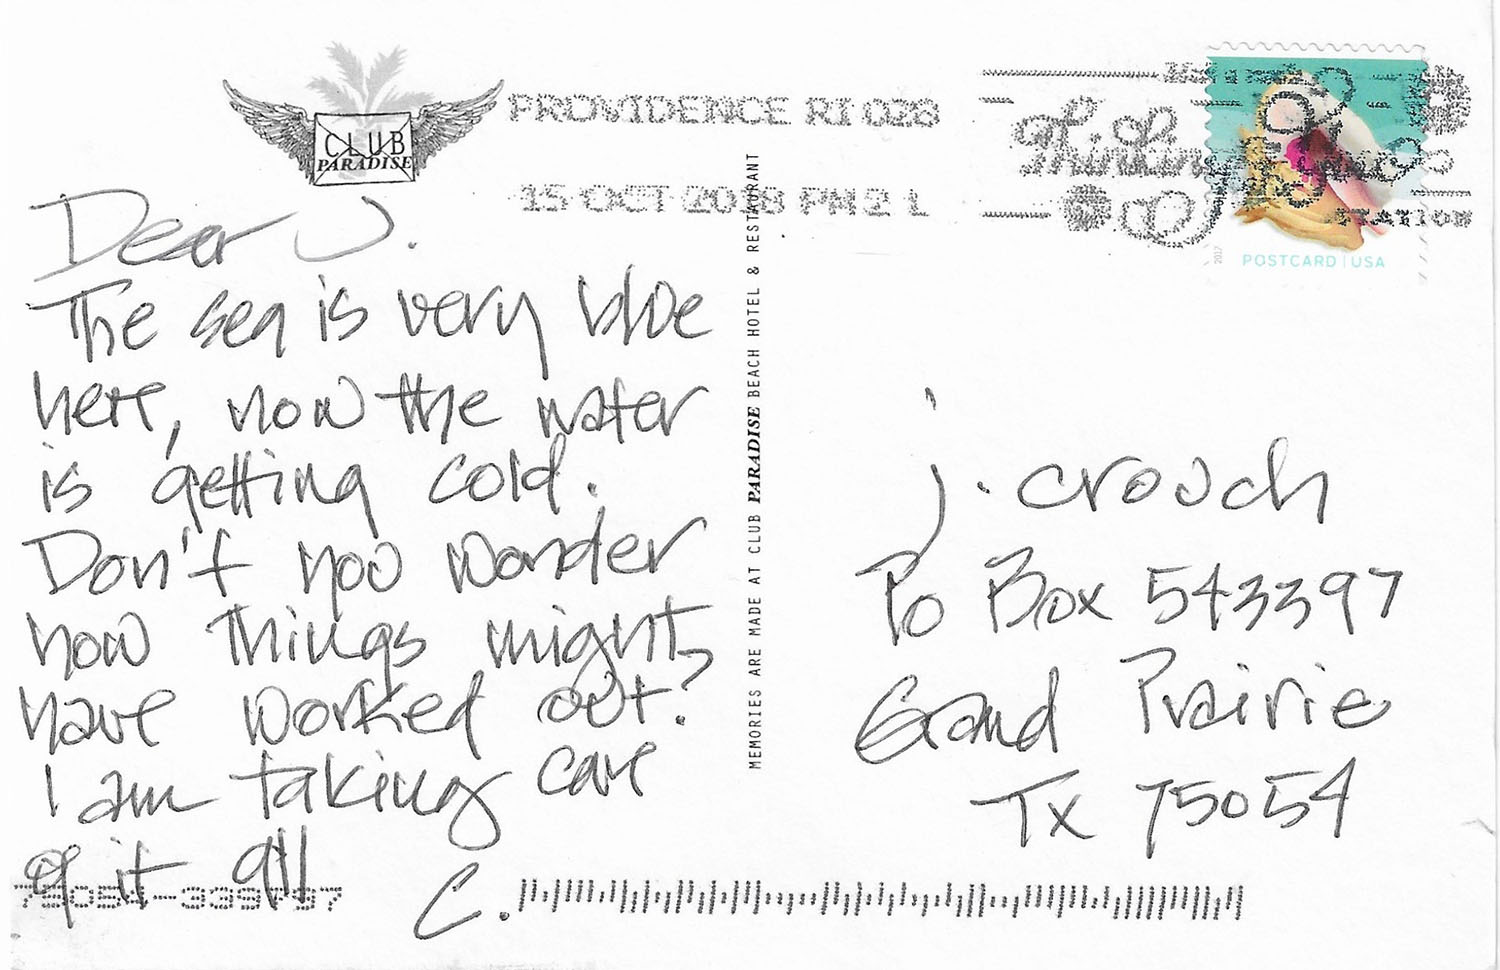 CLUB
PARADISE
PROVIDENCE RI 028
15 OCT 2018 PM 2 L
STATION
2017
POSTCARD | USA
Dear J.
The sea is very blue
here, now the water
is getting cold.
Don't you wonder
how things might
have worked out?
I am taking care
of it all
C.
MEMORIES ARE MADE AT CLUB PARADISE BEACH HOTEL & RESTAURANT
j. crouch
Po Box 543397
Grand Prairie
Tx 75054
75054-339797